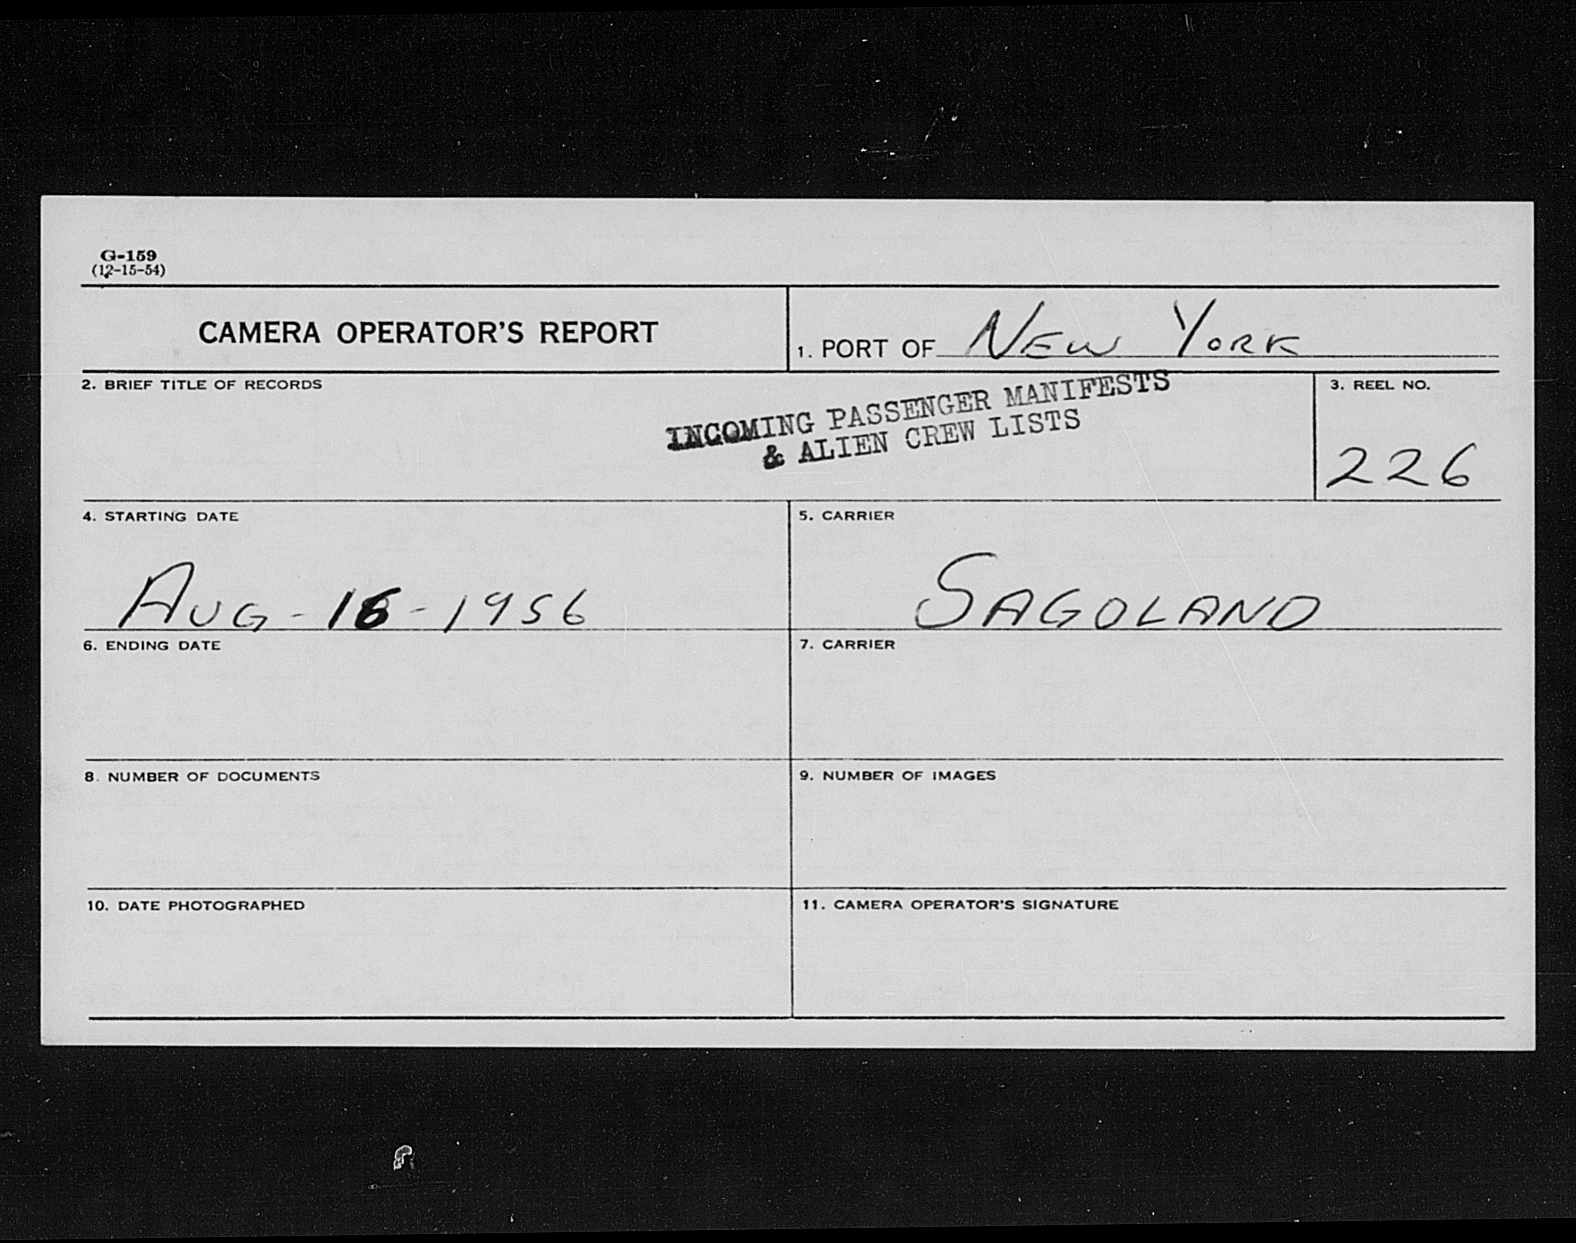 G-159
(12-15-54)
CAMERA OPERATOR'S REPORT
1. PORT OF NEW YORK
2. BRIEF TITLE OF RECORDS
INCOMING PASSENGER MANIFESTS
& ALIEN CREW LISTS
3. REEL NO.
226
4. STARTING DATE
AUG-16-1956
5. CARRIER
SAGOLAND
6. ENDING DATE
7. CARRIER
8. NUMBER OF DOCUMENTS
9. NUMBER OF IMAGES
10. DATE PHOTOGRAPHED
11. CAMERA OPERATOR'S SIGNATURE